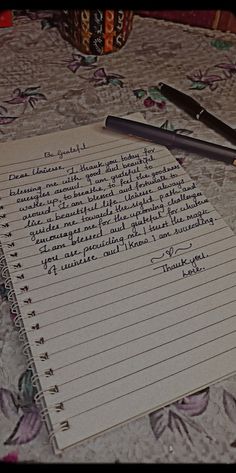 Be Grateful
Dear Universe, I thank you today for
blessing me with good and beautiful
energies around. I am grateful to
wake up, to breathe, to feel the goodness
around. I am blessed and fortunate to
live a beautiful life. Universe always
guides me towards the right path and
encourages me for the upcoming challenges
I am blessed and grateful for whatever
you are providing me. I trust the magic
of universe and I know I am succeeding.
Thank you.
Love.